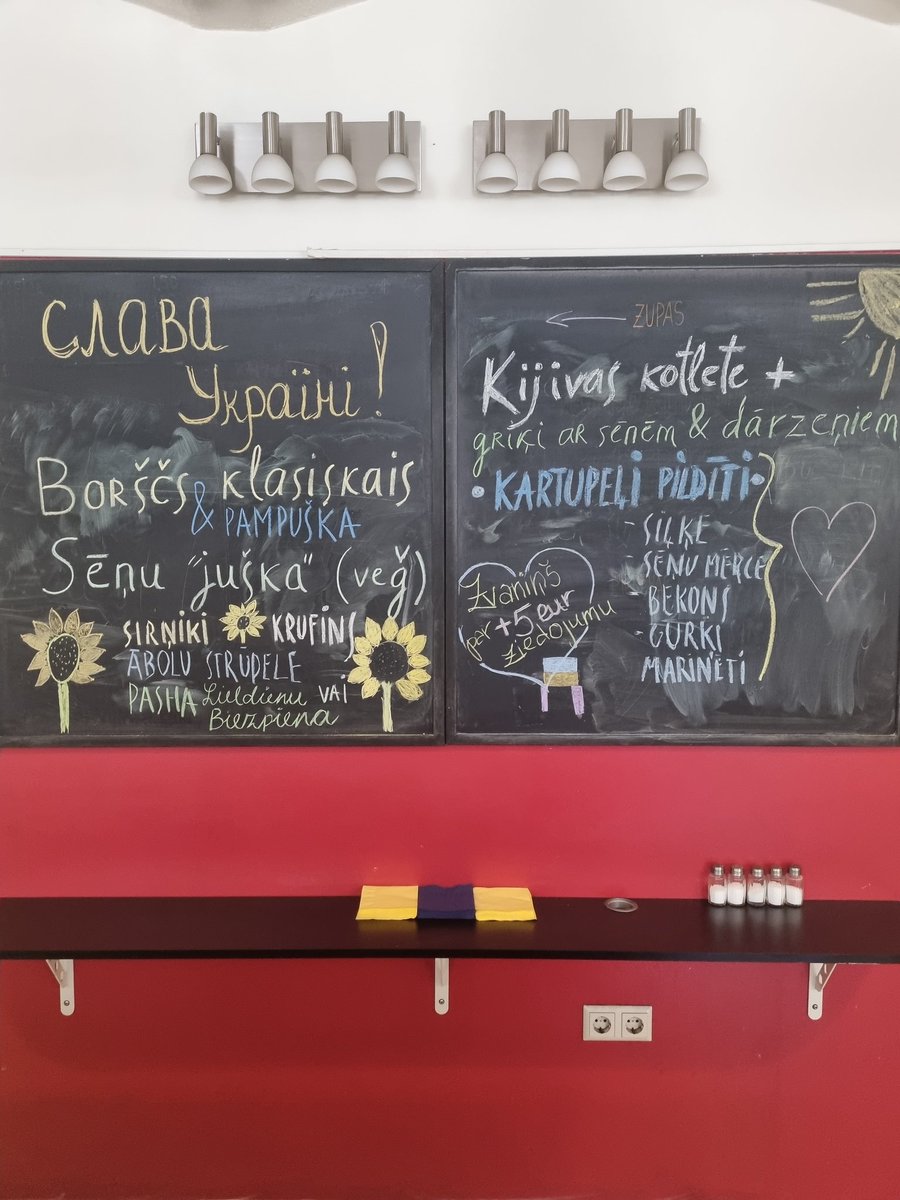 Слава
Україні!
Borščs klasiskais
& PAMPUŠKA
Sēņu "juška" (veģ)
SIRŅIKI KRUFINS
ĀBOLU STRŪDELE
PASHA Lieldienu VAI
Biezpiena
ZUPAS
Kijivas kotlete +
griķi ar sēnēm & dārzeņiem
• KARTUPEĻI PILDĪTI •
- SIĻĶE
- SĒŅU MĒRCE
- BEKONS
- GURĶI
MARINĒTI
Zvaniņš
par +5 eur
ziedojumu